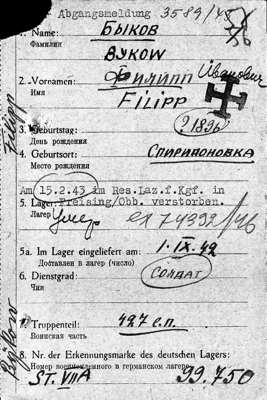 Abgangsmeldung 3589/45
1. Name: БЫКОВ
Фамилия
BYKOW
2. Vornamen: Филипп Иванович
Имя
FILIPP
3. Geburtstag: ? 1896
День рождения
4. Geburtsort: СПИРИДОНОВКА
Место рождения
Am 15.2.43 im Res.Laz.f.Kgf. in
5. Lager: Freising/Obb. verstorben.
Лагерь умер 74392/46
5a. Im Lager eingeliefert am: 1.IX.42
Доставлен в лагерь (число)
6. Dienstgrad: СОЛДАТ
Чин
7. Truppenteil: 427 с.п.
Воинская часть
8. Nr. der Erkennungsmarke des deutschen Lagers:
Номер военнопленного в германском лагере
ST. VII A 99.750
Filipp
Bykow